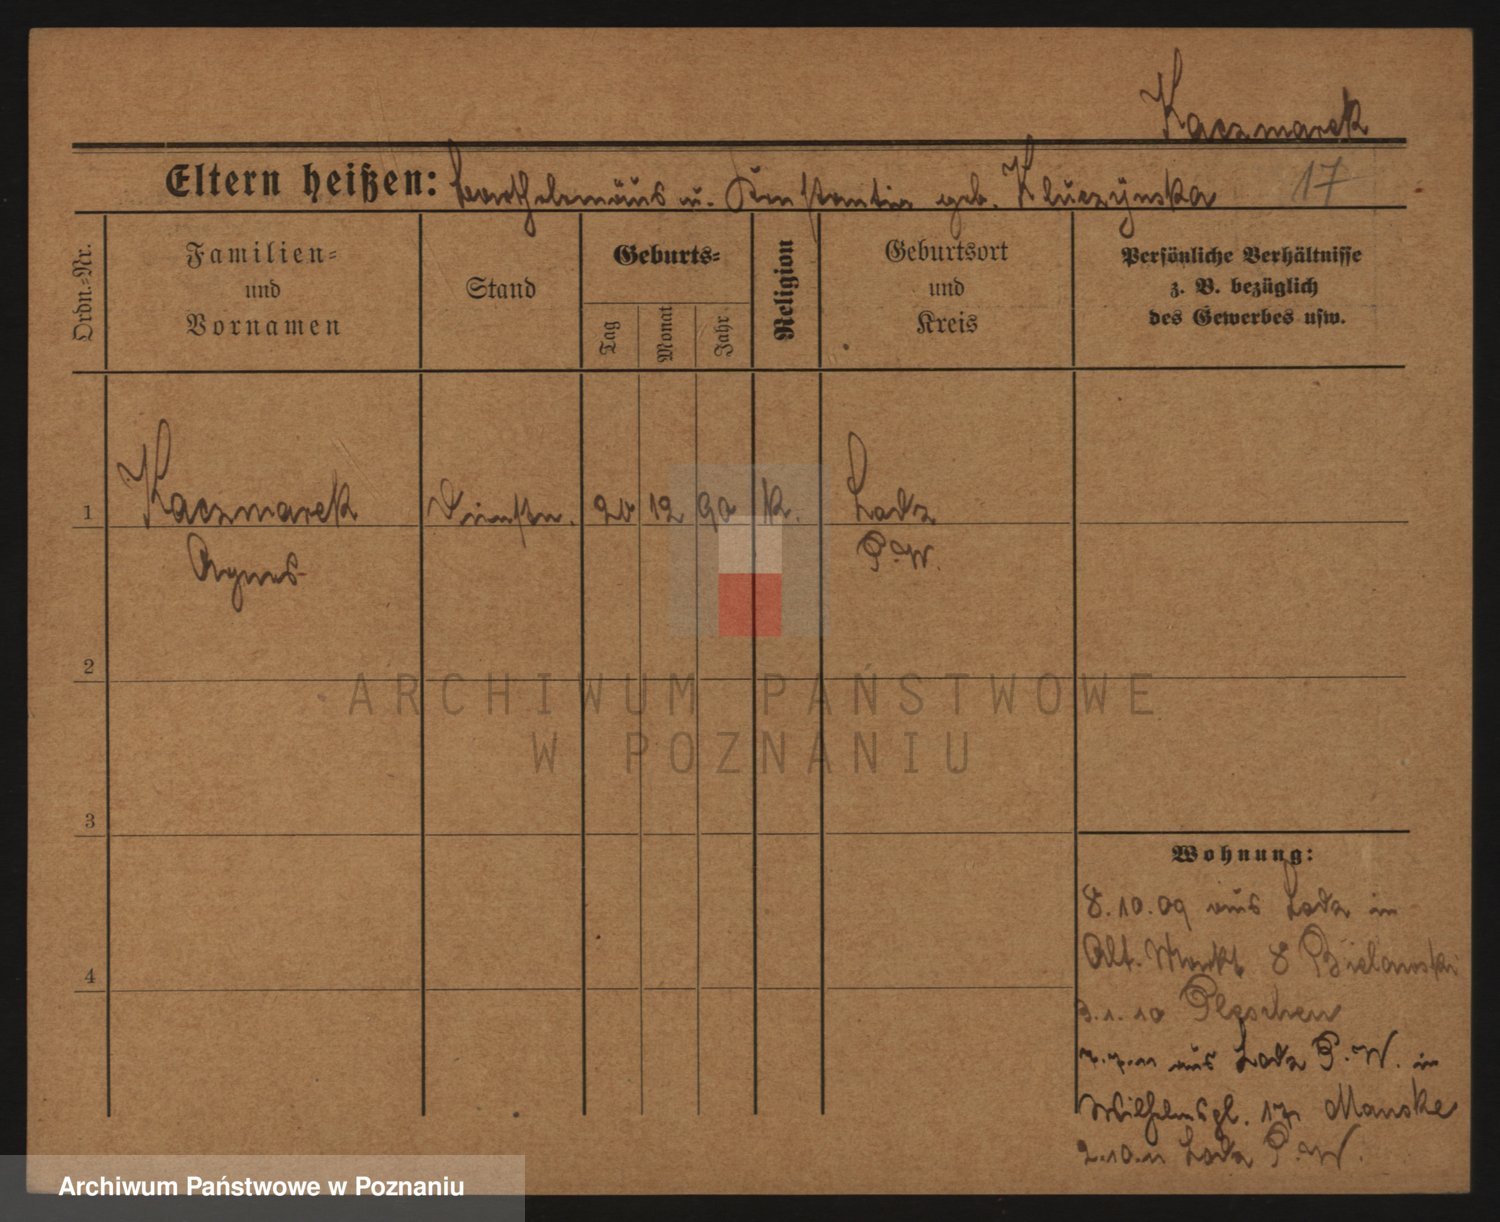 Kaczmarek
Eltern heißen: Barthelomäus u. Konstantia geb. Kluczynska 17
Ordn.-Nr.
Familien-
und
Vornamen
Stand
Geburts-
Tag
Monat
Jahr
Religion
Geburtsort
und
Kreis
Persönliche Verhältnisse
z. B. bezüglich
des Gewerbes usw.
1 Kaczmarek Dienstm. 20 12 90 k. Lodz
Agnes P. W.
2
3
4
ARCHIWUM PAŃSTWOWE
W POZNANIU
Wohnung:
8.10.09 aus Lodz in
Alt. Markt 8 Bielawski
3.1.10 Pleschen
7.7.11 aus Lodz P. W. in
Wilhelmspl. 17 Manske
2.10.11 Lodz P. W.
Archiwum Państwowe w Poznaniu